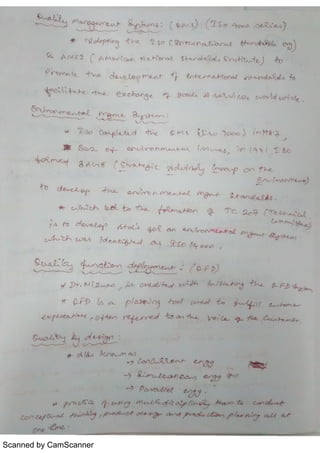 Quality Management Systems: (QMS) (ISO 9000 series)
* Adopting the ISO (International Standards og)
& ANSI (American National Standards Institute) to
Promote the development of International standards to
facilitate the exchange of Goods & services worldwide.
Environmental Mgmt System:
* ISO Completed the QMS (ISO 9000) in 1987,
* Bcoz of environmental issues, in 1991 ISO
formed SAGE (Strategic Advisory Group on the
Environment)
to develop the environmental mgmt Standards.
* which led to the formation of TC 207 (Technical
Committee)
is to develop std's for an environmental mgmt system
which was Identified as ISO 14000.
Quality function deployment: (QFD)
* Dr. Mizuno, is credited with initiating the QFD System
* QFD is a planning tool used to fulfill customer
expectations, often referred to as the voice of the Customer.
Quality by design:
* also known as
→ Concurrent engg
→ Simultaneous engg
→ Parallel engg.
* practice of using multi-disciplinary team to conduct
conceptual thinking, product design and production planning all at
one time.
Scanned by CamScanner